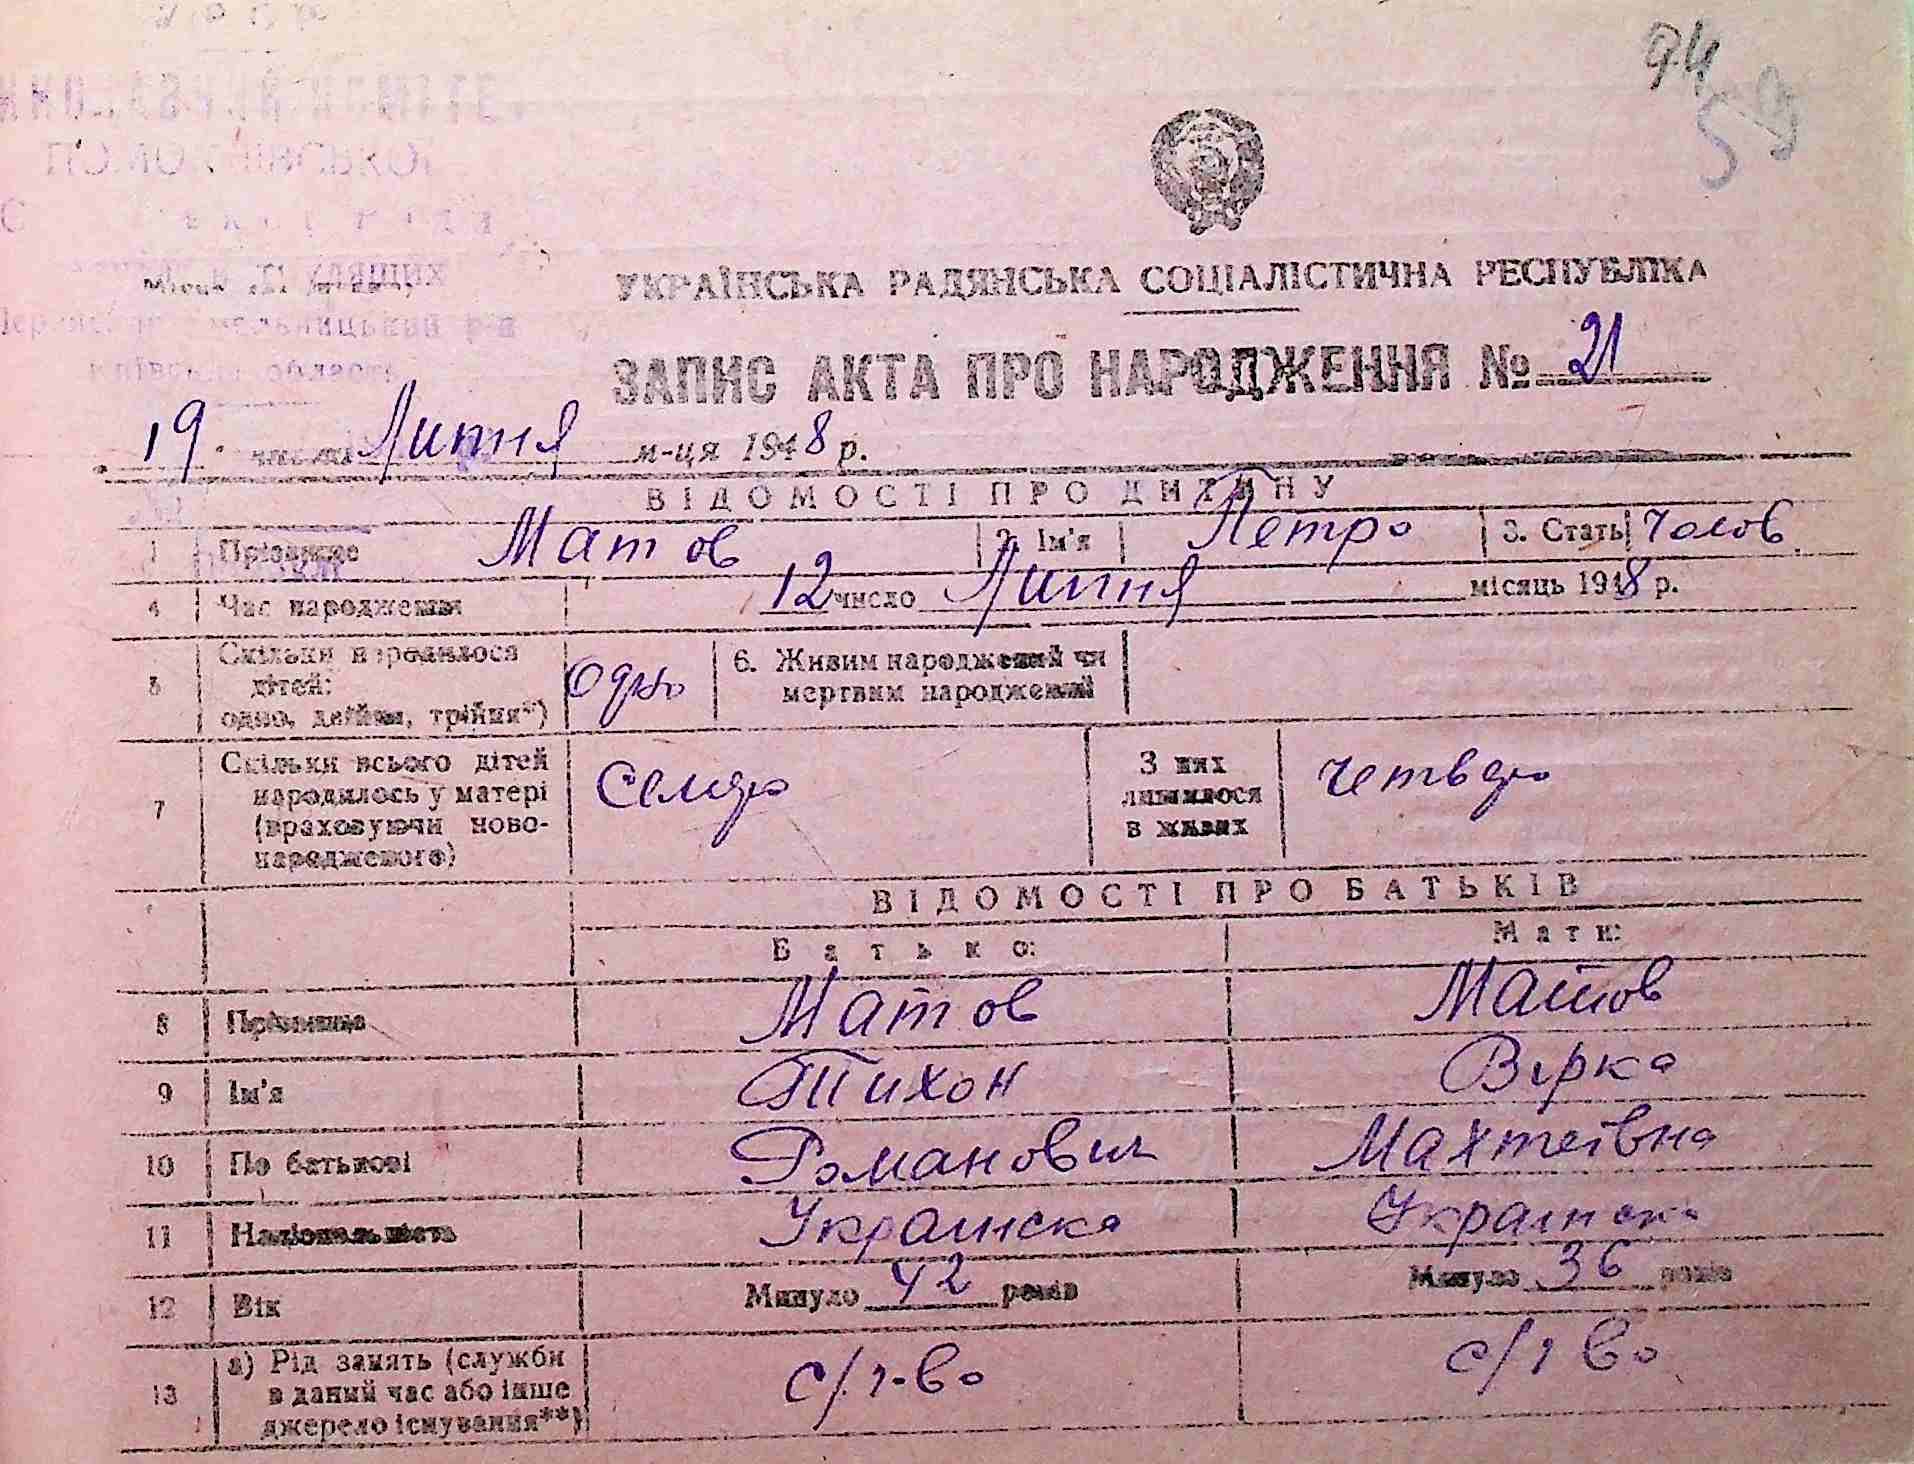 94
59
УКРАЇНСЬКА РАДЯНСЬКА СОЦІАЛІСТИЧНА РЕСПУБЛІКА
ЗАПИС АКТА ПРО НАРОДЖЕННЯ № 21
19 числа Липня м-ця 1948 р.
ВІДОМОСТІ ПРО ДИТИНУ
1 Прізвище Матов 2. Ім'я Петро 3. Стать Чолов
4 Час народження 12 число Липня місяць 1948 р.
5 Скільки народилося дітей: одно, двійня, трійня*) Одно 6. Живим народжений чи мертвим народжений
7 Скільки всього дітей народилось у матері (враховуючи ново-народженого) Семеро З них лишилося в живих четверо
ВІДОМОСТІ ПРО БАТЬКІВ
Батько: Мати:
8 Прізвище Матов Матов
9 Ім'я Тихон Вірка
10 По батькові Романович Махтеівна
11 Національність Украинска Украинска
12 Вік Минуло 42 років Минуло 36 років
13 а) Рід занять (служби в даний час або інше джерело існування**) с/г-во с/г во